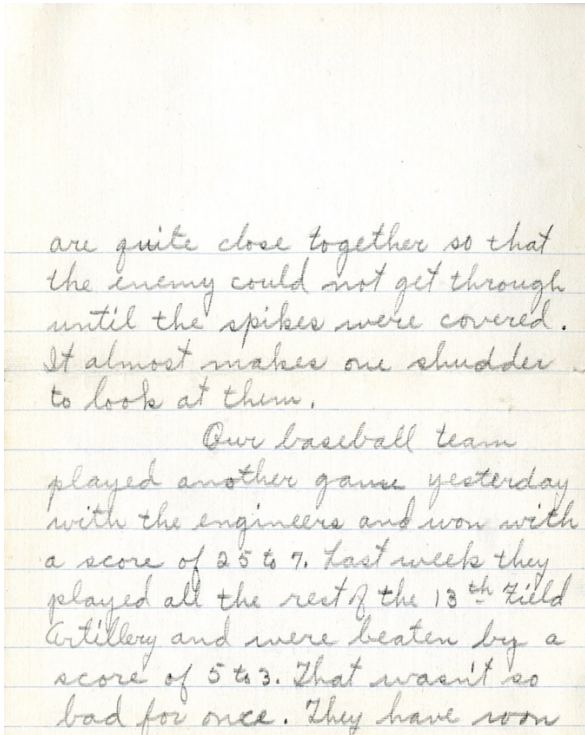 are quite close together so that
the enemy could not get through
until the spikes were covered.
It almost makes one shudder
to look at them.
Our baseball team
played another game yesterday
with the engineers and won with
a score of 25 to 7. Last week they
played all the rest of the 13th Field
Artillery and were beaten by a
score of 5 to 3. That wasn't so
bad for once. They have won